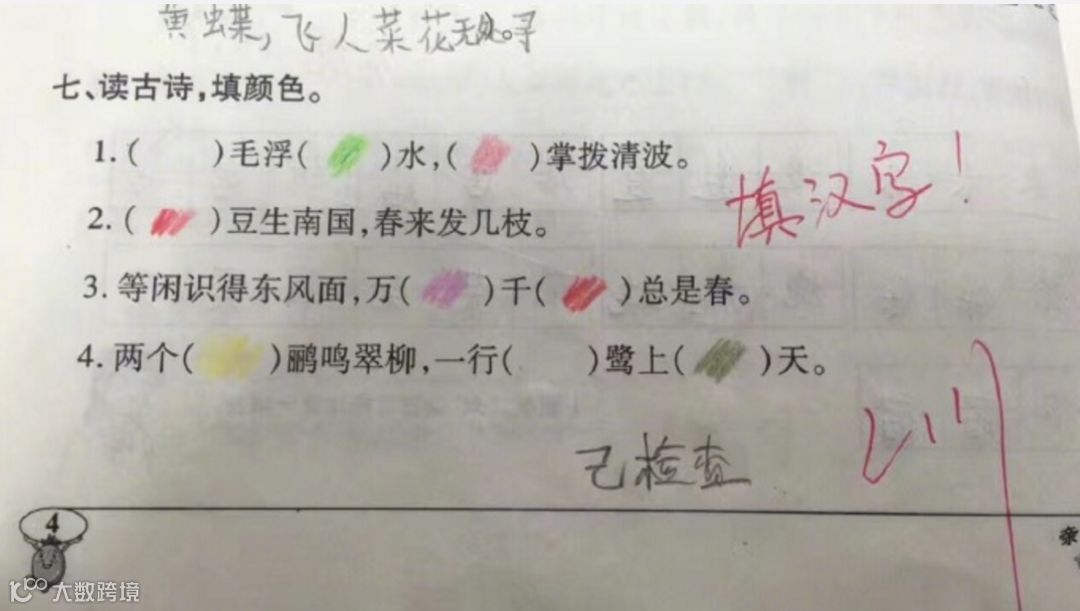 黄蝶,飞入菜花无处寻
七、读古诗,填颜色。
1.( )毛浮( )水,( )掌拨清波。
填汉字!
2.( )豆生南国,春来发几枝。
3.等闲识得东风面,万( )千( )总是春。
4.两个( )鹂鸣翠柳,一行( )鹭上( )天。
已检查
4
亲
大数跨境